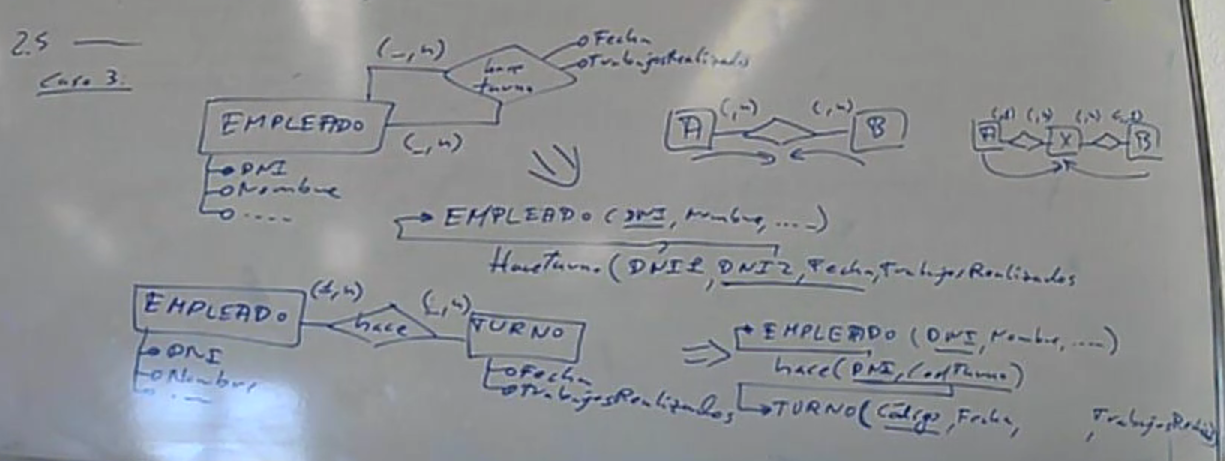 2.5
Caso 3.
(_,n)
hace
turno
Fecha
TrabajosRealizados
EMPLEADO
(_,n)
DNI
Nombre
....
A
(,n)
(,n)
B
A
(,n)
X
B
EMPLEADO (DNI, Nombre, ....)
HaceTurno (DNI1, DNI2, Fecha, TrabajosRealizados
EMPLEADO
(1,n)
hace
(_,n)
TURNO
DNI
Nombre
Fecha
TrabajosRealizados
EMPLEADO (DNI, Nombre, ....)
hace (DNI, CodTurno)
TURNO (Código, Fecha, , TrabajosRealiz